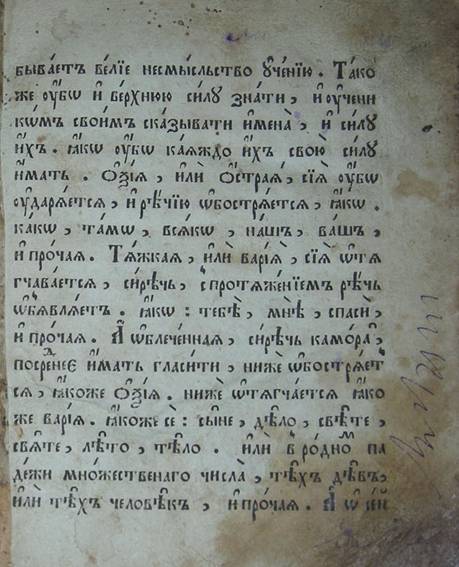 быва́етъ ве́лїе несмы́сльство ᲂу҆че́нїю . Та́ко
же ᲂу҆́бѡ и҆ ве́рхнюю си́лу зна́ти , и҆ ᲂу҆чени
кѡ́мъ свои̑мъ ска́зывати и҆мена̀ , и҆ си́лу
и҆́хъ . ꙗ҆́кѡ ᲂу҆́бѡ ка́яждо и҆́хъ свою̀ си́лу
и҆́мать . Ѻ҆ѯі́ѧ , и҆лѝ ѻ҆́страѧ , сїѧ̀ ᲂу҆́бѡ
ᲂу҆дарѧ́етсѧ , и҆ рѣ́чїю ѡ҆бострѧ́етсѧ , ꙗ҆́кѡ .
ка́кѡ , та́мѡ , всѧ́кѡ , на́шъ , ва́шъ ,
и҆ про́чаѧ . Тѧ́жкаѧ , и҆лѝ варі́ѧ , сїѧ̀ ѡ҆тѧ
гчава́етсѧ , си́рѣчь , с̾ протѧже́нїемъ рѣ́чь
ѡ҆б̾ѧвлѧ́етъ . ꙗ҆́кѡ : тебѣ̀ , мнѣ̀ , спасѝ ,
и҆ про́чаѧ . А҆ ѡ҆блече́ннаѧ , си́рѣчь камо́ра ,
посре́днеє и҆́мать гласи́ти , нижѐ ѡ҆бострѧ́ет
сѧ , ꙗ҆́коже Ѻ҆ѯі́ѧ . нижѐ ѡ҆тѧгча́етсѧ ꙗ҆́ко
же варі́ѧ . ꙗ҆́коже сѐ : сы́не , дѣ́ло , свѣ́те ,
свѧ́те , лѣ́то , тѣ́ло . и҆лѝ в̾ ро́дномъ па
де́жи мно́жественаго числа̀ , тѣ́хъ дѣ́въ ,
и҆лѝ тѣ́хъ человѣ́къ , и҆ про́чаѧ . А҆ ѡ҆ се́й